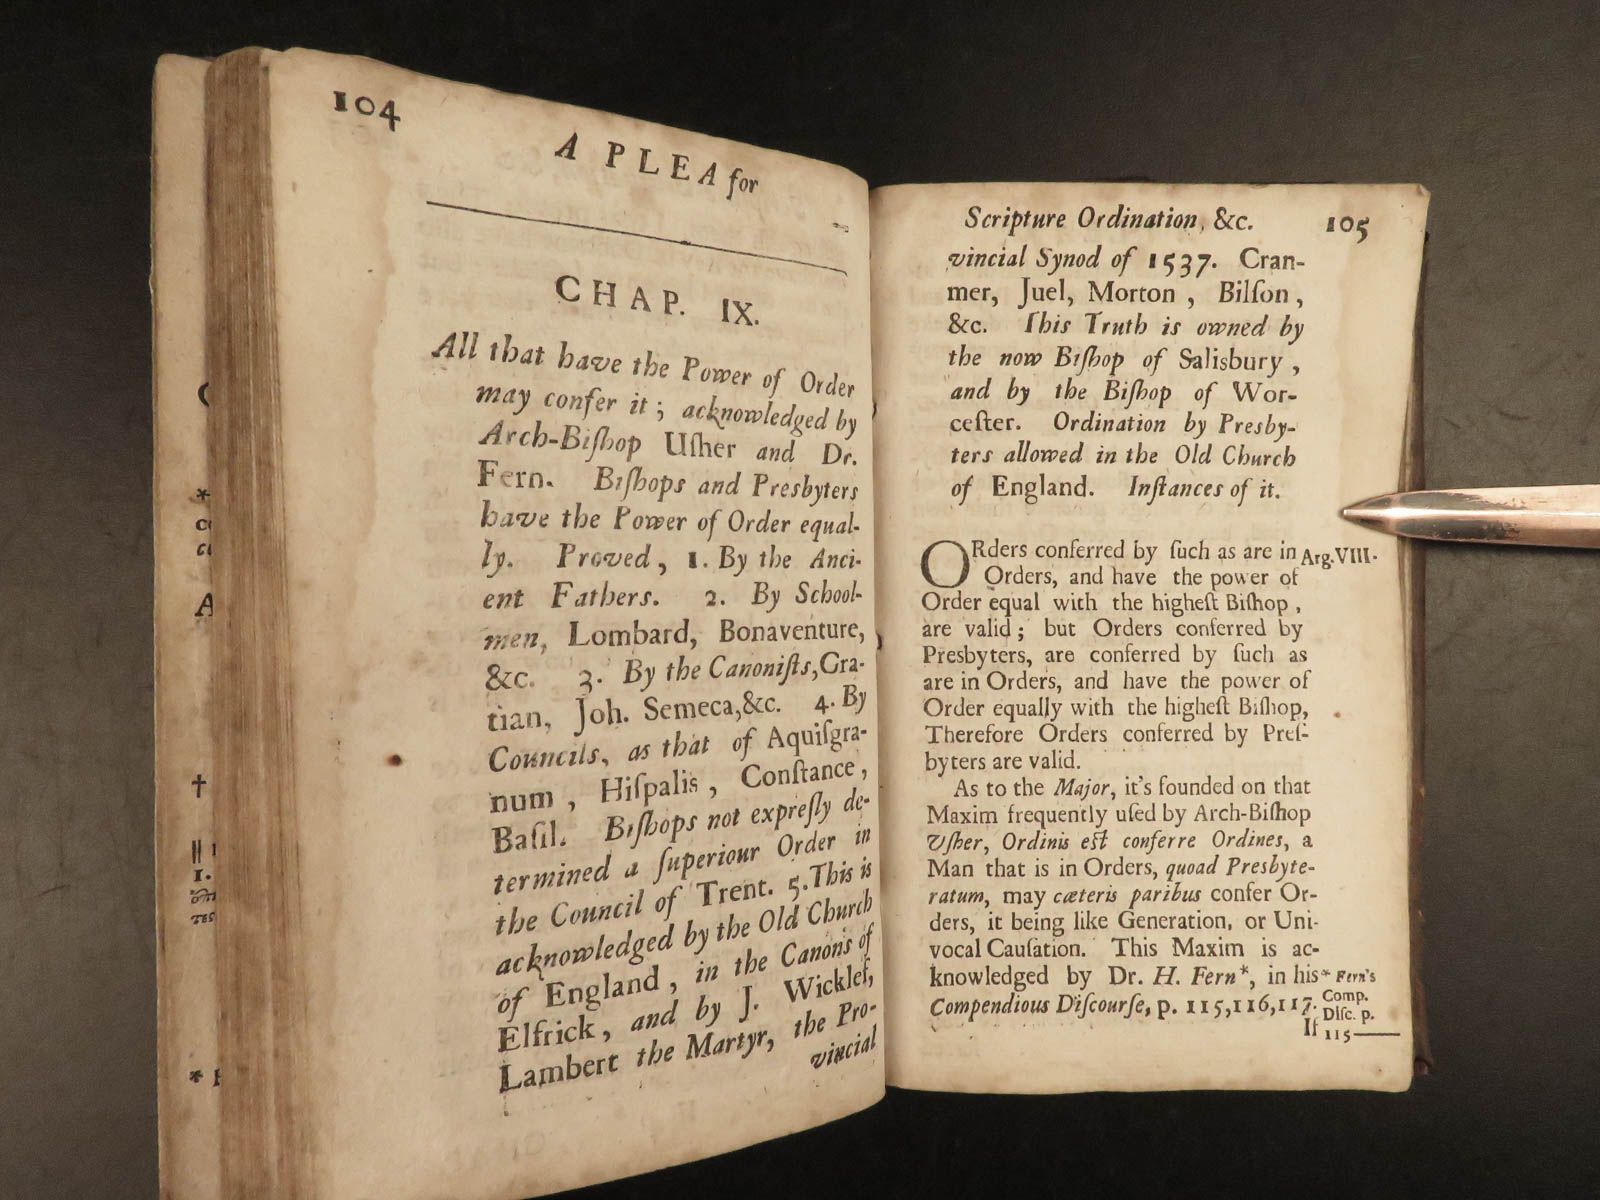 104
A PLEA for
CHAP. IX.
All that have the Power of Order
may confer it; acknowledged by
Arch-Biſhop Uſher and Dr.
Fern. Biſhops and Presbyters
have the Power of Order equal-
ly. Proved, 1. By the Anci-
ent Fathers. 2. By School-
men, Lombard, Bonaventure,
&c. 3. By the Canoniſts, Gra-
tian, Joh. Semeca, &c. 4. By
Councils, as that of Aquiſgra-
num, Hiſpalis, Conſtance,
Baſil. Biſhops not expreſly de-
termined a ſuperiour Order in
the Council of Trent. 5. This is
acknowledged by the Old Church
of England, in the Canons of
Elfrick, and by J. Wicklef,
Lambert the Martyr, the Pro-
vincial
Scripture Ordination, &c. 105
vincial Synod of 1537. Cran-
mer, Juel, Morton, Bilſon,
&c. This Truth is owned by
the now Biſhop of Salisbury,
and by the Biſhop of Wor-
ceſter. Ordination by Presby-
ters allowed in the Old Church
of England. Inſtances of it.
ORders conferred by ſuch as are in Arg. VIII.
Orders, and have the power of
Order equal with the higheſt Biſhop,
are valid; but Orders conferred by
Presbyters, are conferred by ſuch as
are in Orders, and have the power of
Order equally with the higheſt Biſhop,
Therefore Orders conferred by Preſ-
byters are valid.
As to the Major, it's founded on that
Maxim frequently uſed by Arch-Biſhop
Uſher, Ordinis eſt conferre Ordines, a
Man that is in Orders, quoad Presbyte-
ratum, may cæteris paribus confer Or-
ders, it being like Generation, or Uni-
vocal Cauſation. This Maxim is ac-
knowledged by Dr. H. Fern*, in his
Compendious Diſcourſe, p. 115, 116, 117.
If
* Fern's
Comp.
Diſc. p.
115